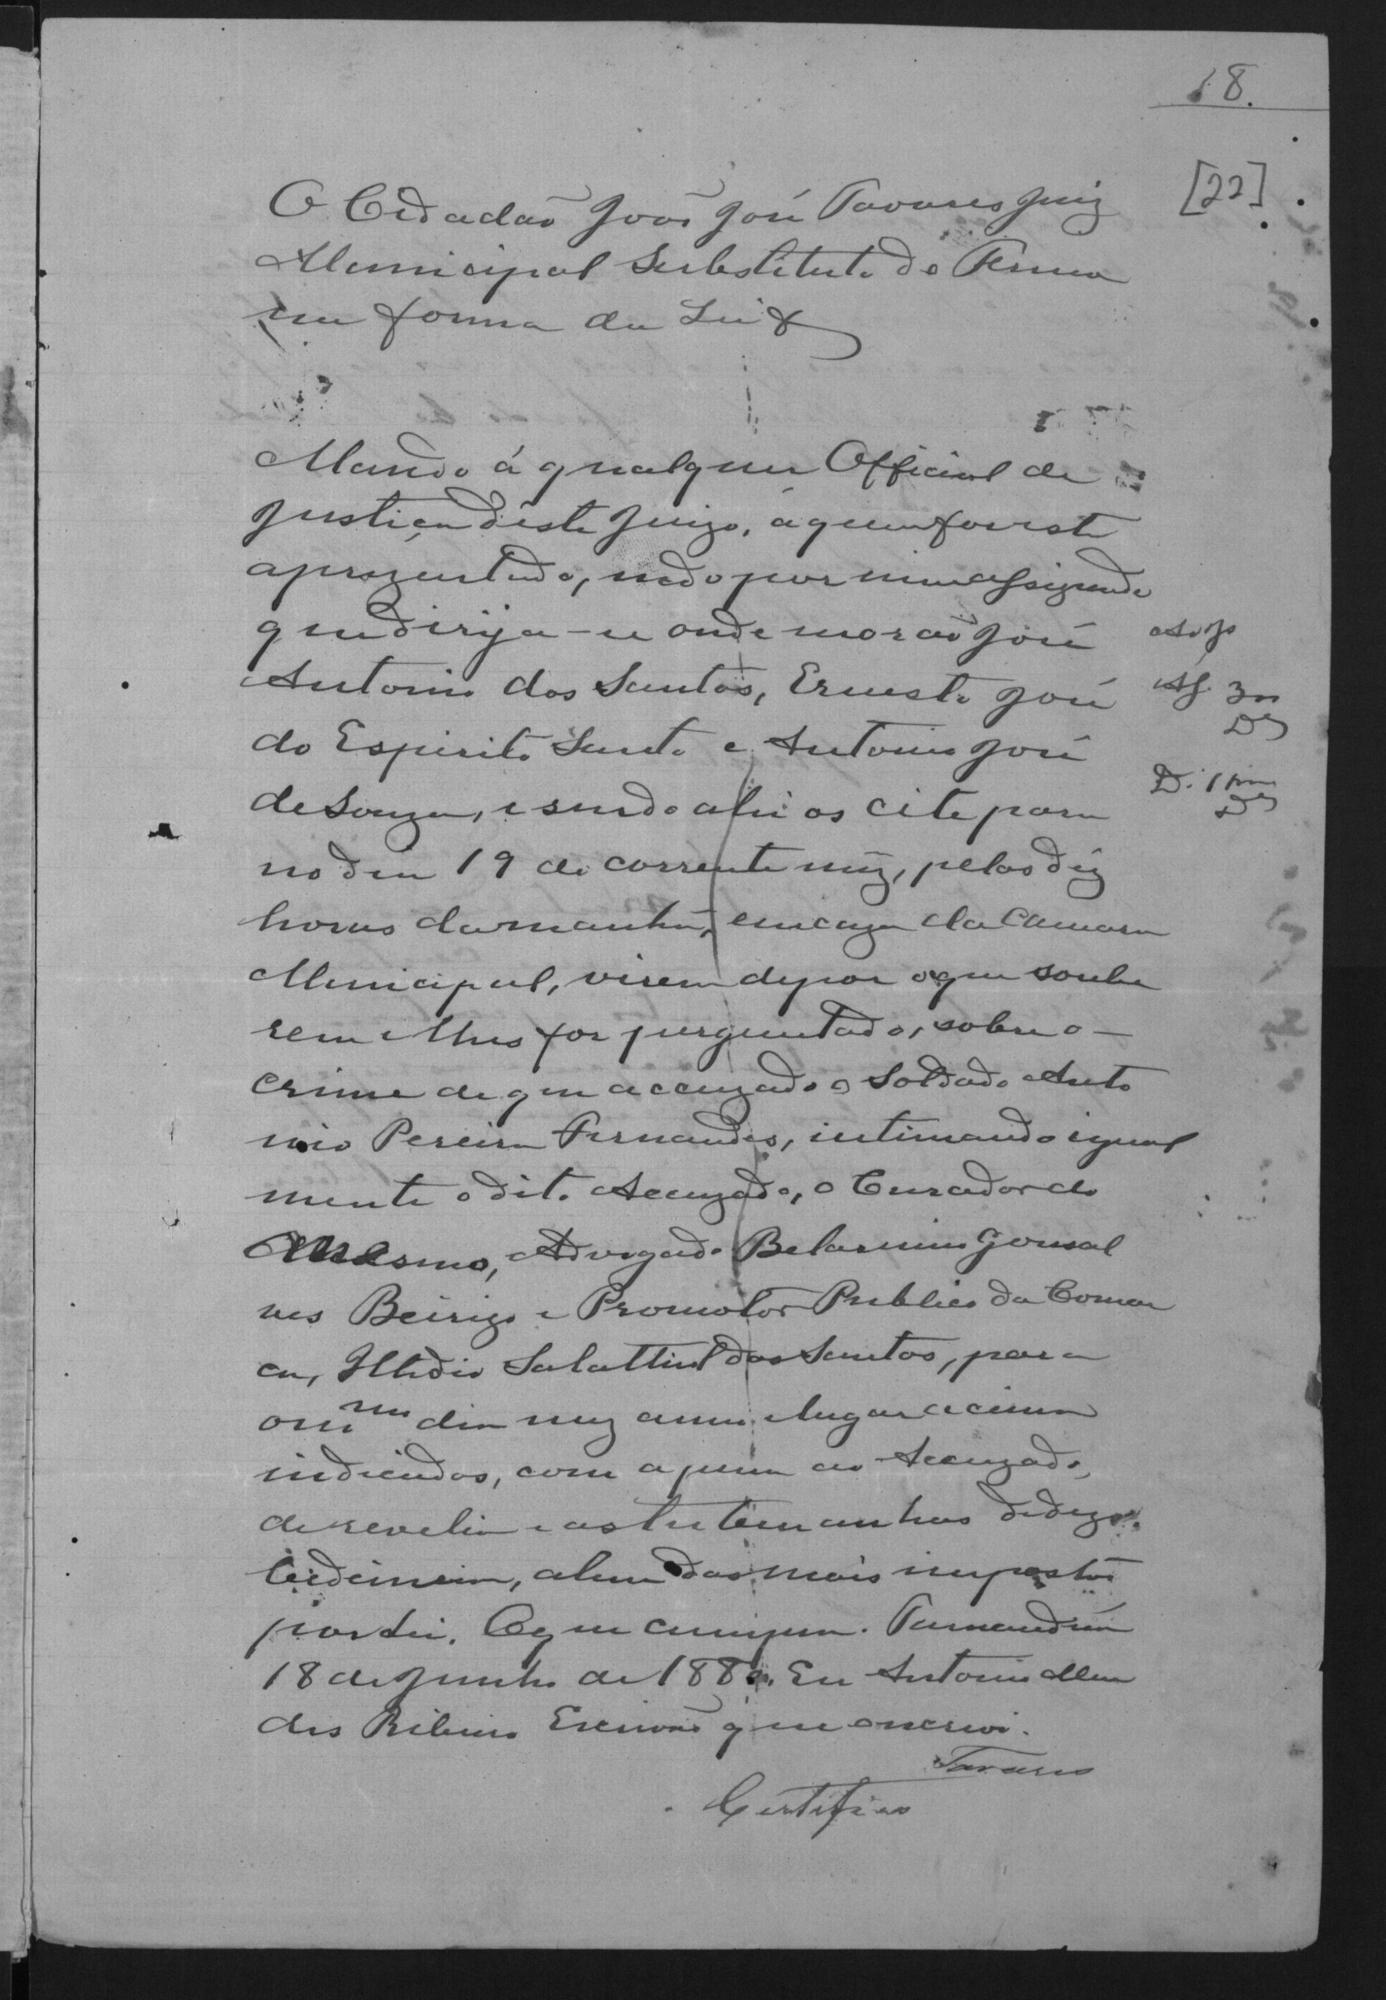 18.
[22]
O Cidadão João José Tavares Juiz
Municipal Substituto do Termo
na forma da Lei &
Mando á qualquer Official de
Justiça deste Juizo, á quem for este
aprezentado, indo por mim assignado
que dirija-se onde morão José
Antonio dos Santos, Ernesto José
do Espirito Santo e Antonio José
de Souza, e sendo ahi os cite para
no dia 19 do corrente mez, pelas déz
horas da manhã, em caza da Camara
Municipal, virem depor o que soube
rem e lhes for perguntado, sobre o
crime de que accuzado o Soldado Anto
nio Pereira Fernandes, intimando igual
mente o dito Accuzado, o Curador do
Mesmo, Advogado Belarmino Gonsal
ves Beirigo e Promotor Publico da Comar
ca, Illidio Salathiel dos Santos, para
o mmo dia mez anno e lugar acima
indicados, com a pena ao Accuzado,
de revelia e as testemunhas de dezo
bediencia, alem das mais impostas
por Lei. O que cumpra. Tamanduá
18 de Junho de 188 Eu Antonio Men
des Ribeiro Escrivão que escrevi.
Tavares
Certifico